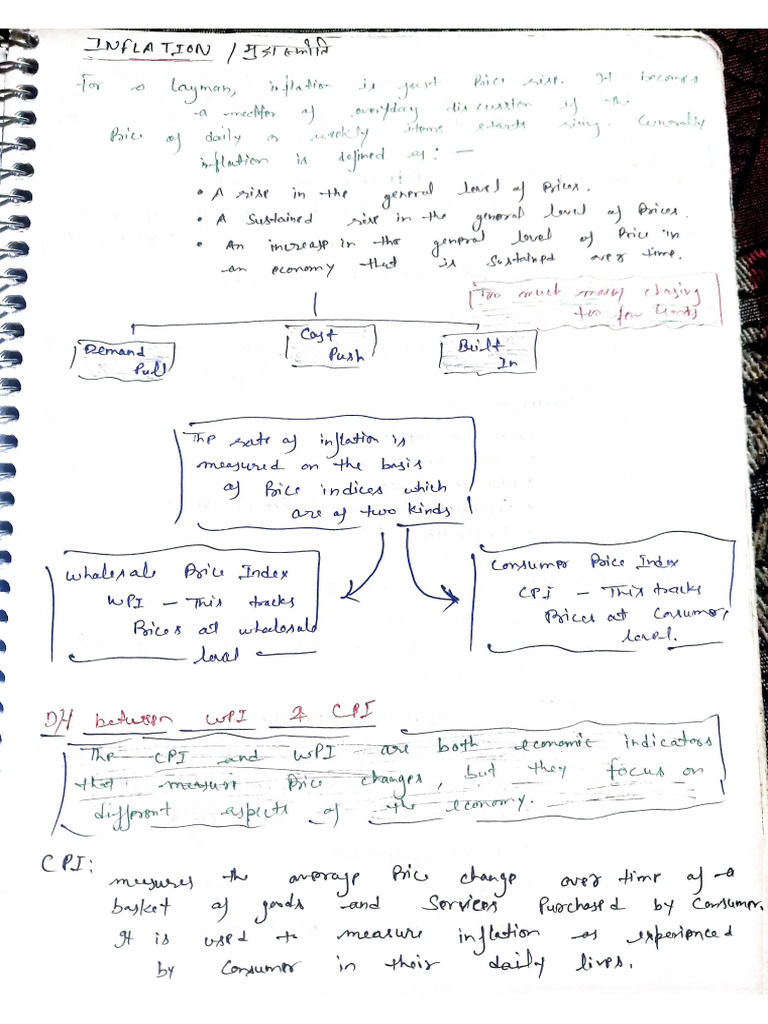 INFLATION / मुद्रास्फीति
For a layman, inflation is just Price rise. It becomes
a matter of everyday discussion if the
Price of daily or weekly items starts rising. Generally
inflation is defined as: -
• A rise in the general level of Prices.
• A Sustained rise in the general level of Prices.
• An increase in the general level of Price in
an economy that is Sustained over time.
Too much money chasing
too few Goods
Demand
Pull
Cost
Push
Built
In
The rate of inflation is
measured on the basis
of Price indices which
are of two kinds
Wholesale Price Index
WPI - This tracks
Prices at wholesale
level
Consumer Price Index
CPI - This tracks
Prices at Consumer
level.
Diff between WPI & CPI
The CPI and WPI are both economic indicators
that measure Price changes, but they focus on
different aspects of the economy.
CPI:
measures the average Price change over time of a
basket of goods and Services Purchased by Consumer.
It is used to measure inflation as experienced
by Consumer in their daily lives.